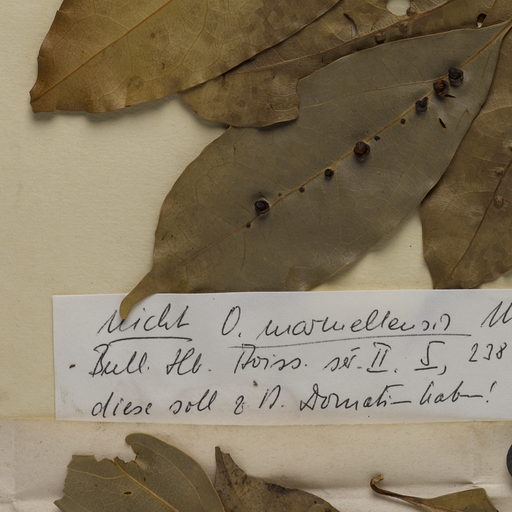 nicht O. marmellensis M
Bull. Hb. Boiss. sér. II. 5, 238
diese soll z. B. Domatien haben!